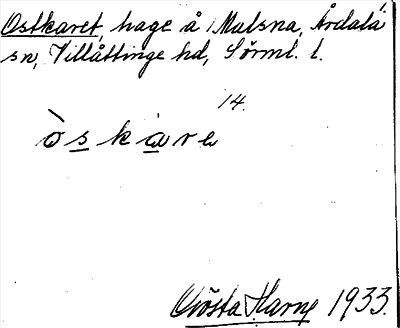 Ostkaret, hage å Malsna, Årdala
sn, Villåttinge hd, Sörml. l.
14.
òskàre
Gösta Harne 1933.